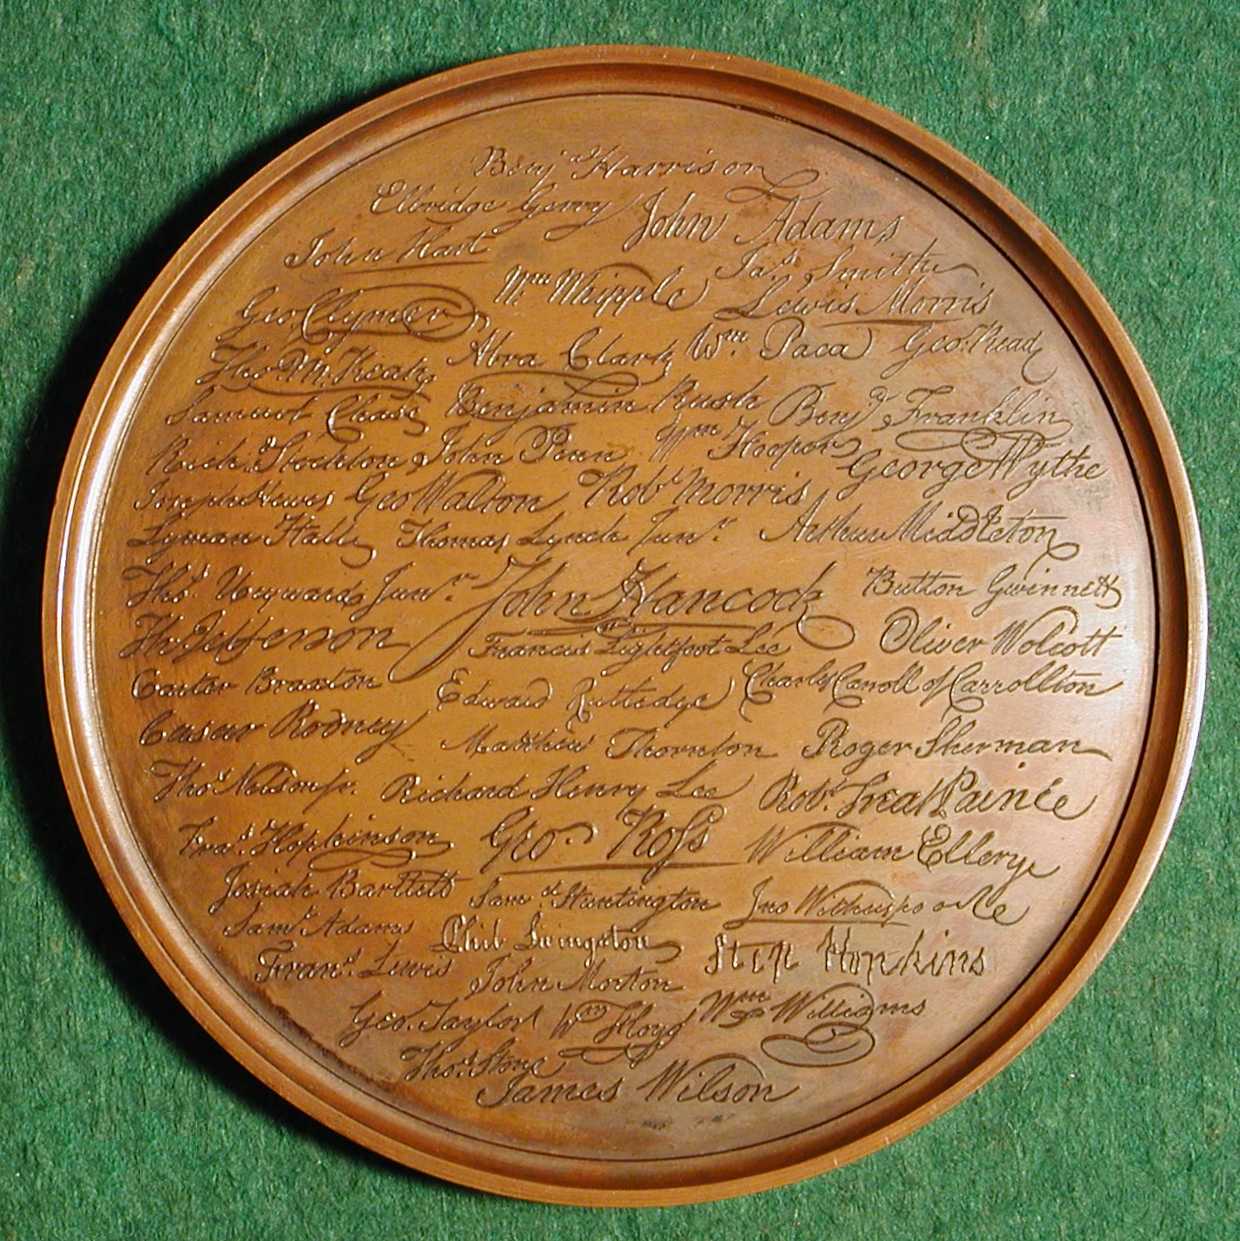 Benjª Harrison
Elbridge Gerry John Adams
John Hart Jaˢ. Smith
Wᵐ Whipple Lewis Morris
Geo. Clymer Wᵐ. Paca Geo. Read
Thoˢ M. Kean Abra Clark
Samuel Chase Benjamin Rush Benjª Franklin
Richᵈ. Stockton John Penn Wᵐ Hooper George Wythe
Joseph Hewes Geo Walton Robᵗ Morris
Lyman Hall Thomas Lynch Junʳ. Arthur Middleton
Thoˢ. Heyward Junʳ. John Hancock Button Gwinnett
Th Jefferson Francis Lightfoot Lee Oliver Wolcott
Carter Braxton Edward Rutledge Charles Carroll of Carrollton
Cæsar Rodney Matthew Thornton Roger Sherman
Thoˢ. Nelson jr. Richard Henry Lee Robᵗ. Treat Paine
Fraˢ. Hopkinson Geo. Ross William Ellery
Josiah Bartlett Samˡ Huntington Jno Witherspoon
Samˡ Adams Phil. Livingston Step Hopkins
Franˢ. Lewis John Morton
Geo. Taylor Wᵐ Floyd Wᵐ Williams
Thoˢ. Stone
James Wilson